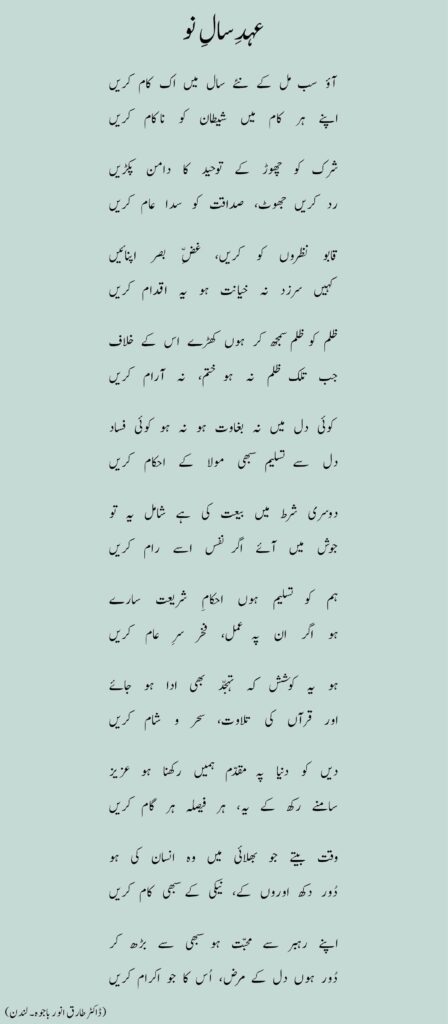 عہدِ سالِ نو
آؤ سب مل کے نئے سال میں اک کام کریں
اپنے ہر کام میں شیطان کو ناکام کریں
شرک کو چھوڑ کے توحید کا دامن پکڑیں
رد کریں جھوٹ، صداقت کو سدا عام کریں
قابو نظروں کو کریں، غضِّ بصر اپنائیں
کہیں سرزد نہ خیانت ہو یہ اقدام کریں
ظلم کو ظلم سمجھ کر ہوں کھڑے اس کے خلاف
جب تلک ظلم نہ ہو ختم، نہ آرام کریں
کوئی دل میں نہ بغاوت ہو نہ ہو کوئی فساد
دل سے تسلیم سبھی مولا کے احکام کریں
دوسری شرط میں بیعت کی ہے شامل یہ تو
جوش میں آئے اگر نفس اسے رام کریں
ہم کو تسلیم ہوں احکامِ شریعت سارے
ہو اگر ان پہ عمل، فخر سرِ عام کریں
ہو یہ کوشش کہ تہجّد بھی ادا ہو جائے
اور قرآں کی تلاوت، سحر و شام کریں
دیں کو دنیا پہ مقدّم ہمیں رکھنا ہو عزیز
سامنے رکھ کے یہ، ہر فیصلہ ہر گام کریں
وقت بیتے جو بھلائی میں وہ انسان کی ہو
دُور دکھ اوروں کے، نیکی کے سبھی کام کریں
اپنے رہبر سے محبّت ہو سبھی سے بڑھ کر
دُور ہوں دل کے مرض، اُس کا جو اکرام کریں
(ڈاکٹر طارق انور باجوہ۔ لندن)